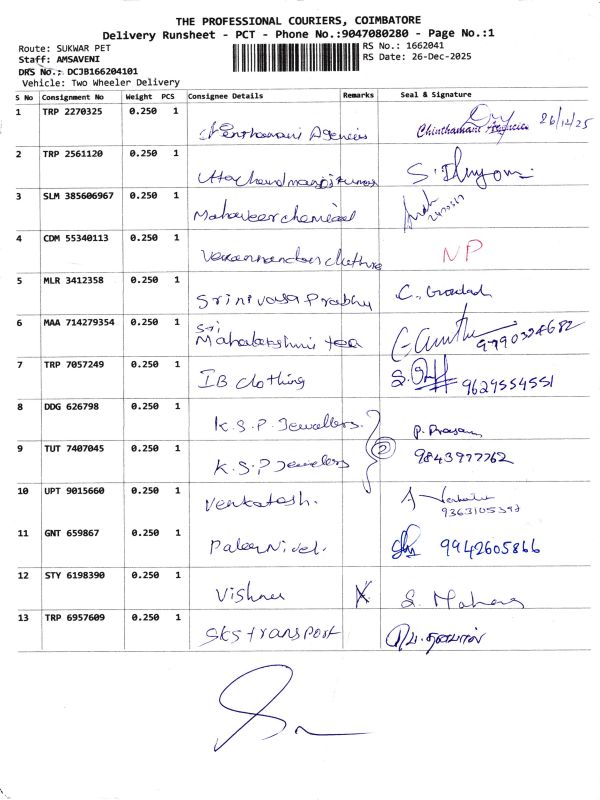 THE PROFESSIONAL COURIERS, COIMBATORE
Delivery Runsheet - PCT - Phone No.:9047080280 - Page No.:1
Route: SUKWAR PET
RS No.: 1662041
Staff: AMSAVENI
RS Date: 26-Dec-2025
DRS No.: DCJB166204101
Vehicle: Two Wheeler Delivery
S No Consignment No Weight PCS Consignee Details Remarks Seal & Signature
1 TRP 2270325 0.250 1 Agencies Chinthamani Agencies 26/12/25
2 TRP 2561120 0.250 1
3 SLM 385606967 0.250 1 Mahaveer chemical
4 CDM 55340113 0.250 1 NP
5 MLR 3412358 0.250 1 Srinivasa Prabhu
6 MAA 714279354 0.250 1 Sri Mahalakshmi tea
7 TRP 7057249 0.250 1 IB clothing 9629554551
8 DDG 626798 0.250 1 K.S.P. Jewellers. P. Prasan
9 TUT 7407045 0.250 1 K.S.P Jewelers 2 9843977762
10 UPT 9015660 0.250 1 Venkatesh.
11 GNT 659867 0.250 1 9942605866
12 STY 6198390 0.250 1 Vishnu X
13 TRP 6957609 0.250 1 SKS transport